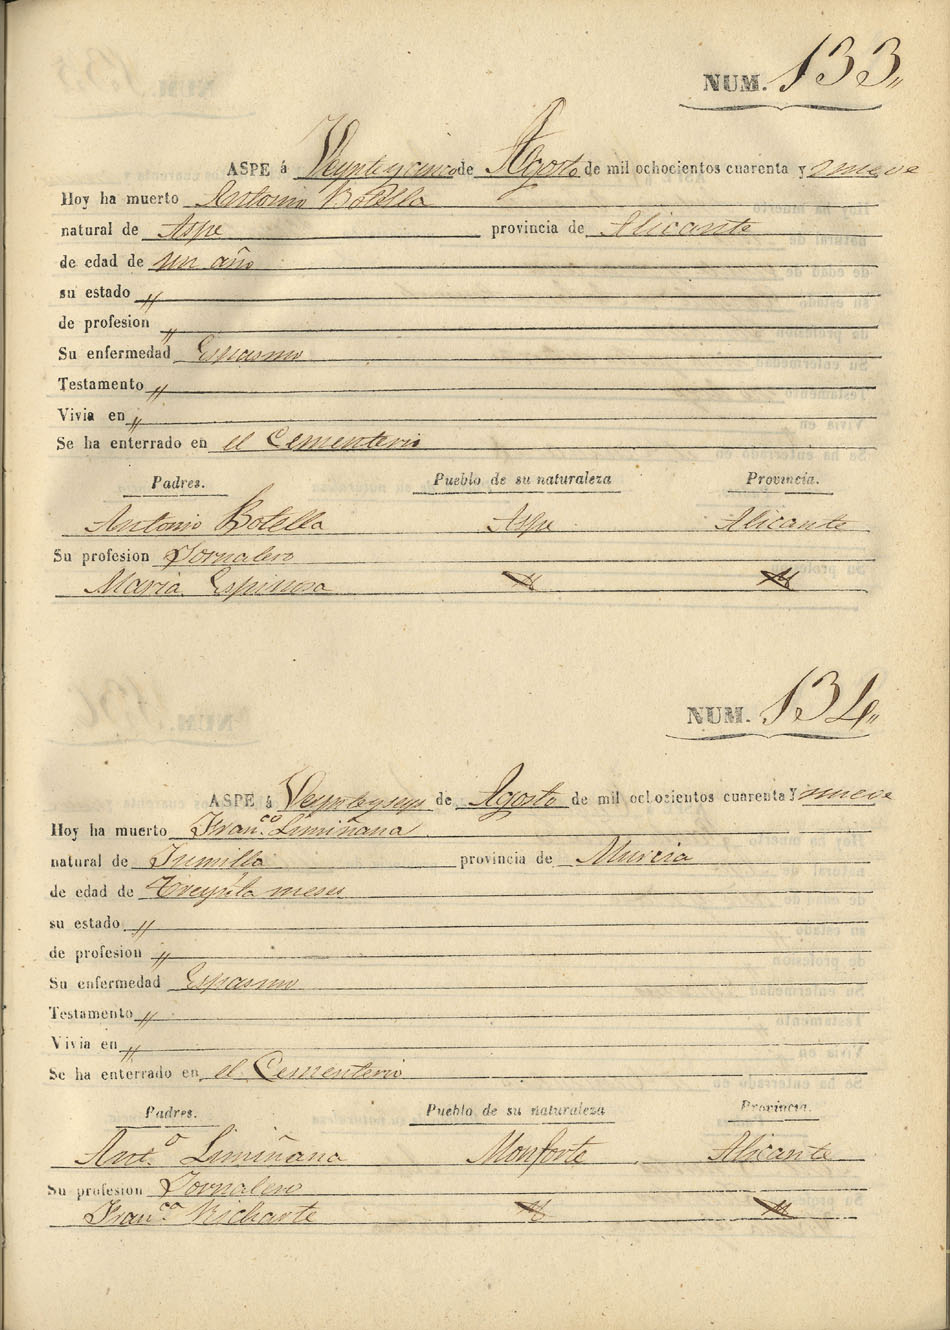 NUM. 133,,
ASPE á Veynteycinco de Agosto de mil ochocientos cuarenta y nueve
Hoy ha muerto Antonio Botella
natural de Aspe provincia de Alicante
de edad de un año
su estado ,,
de profesion ,,
Su enfermedad Espasmo
Testamento ,,
Vivia en ,,
Se ha enterrado en el Cementerio
Padres. Pueblo de su naturaleza Provincia.
Antonio Botella Aspe Alicante
Su profesion Jornalero
Maria Espinosa
NUM. 134,,
ASPE á Veynteyseys de Agosto de mil ochocientos cuarenta y nueve
Hoy ha muerto Fran.co Limiñana
natural de Jumilla provincia de Murcia
de edad de Treynta meses
su estado ,,
de profesion ,,
Su enfermedad Espasmo
Testamento ,,
Vivia en ,,
Se ha enterrado en el Cementerio
Padres. Pueblo de su naturaleza Provincia.
Ant.o Limiñana Monforte Alicante
Su profesion Jornalero
Fran.ca Richarte